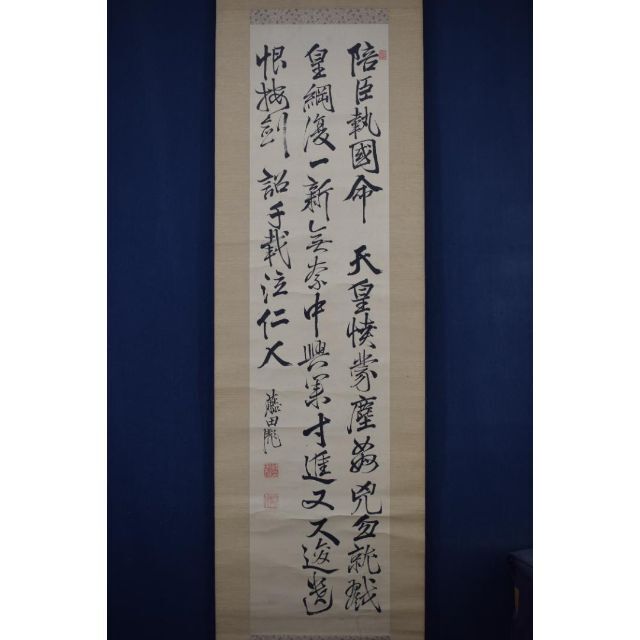 陪臣執國命 天皇憤蒙塵姦兇忽就戮
皇綱復一新無奈中興業寸進又尺逡遺
恨按劍 詔千載泣仁人
藤田彪